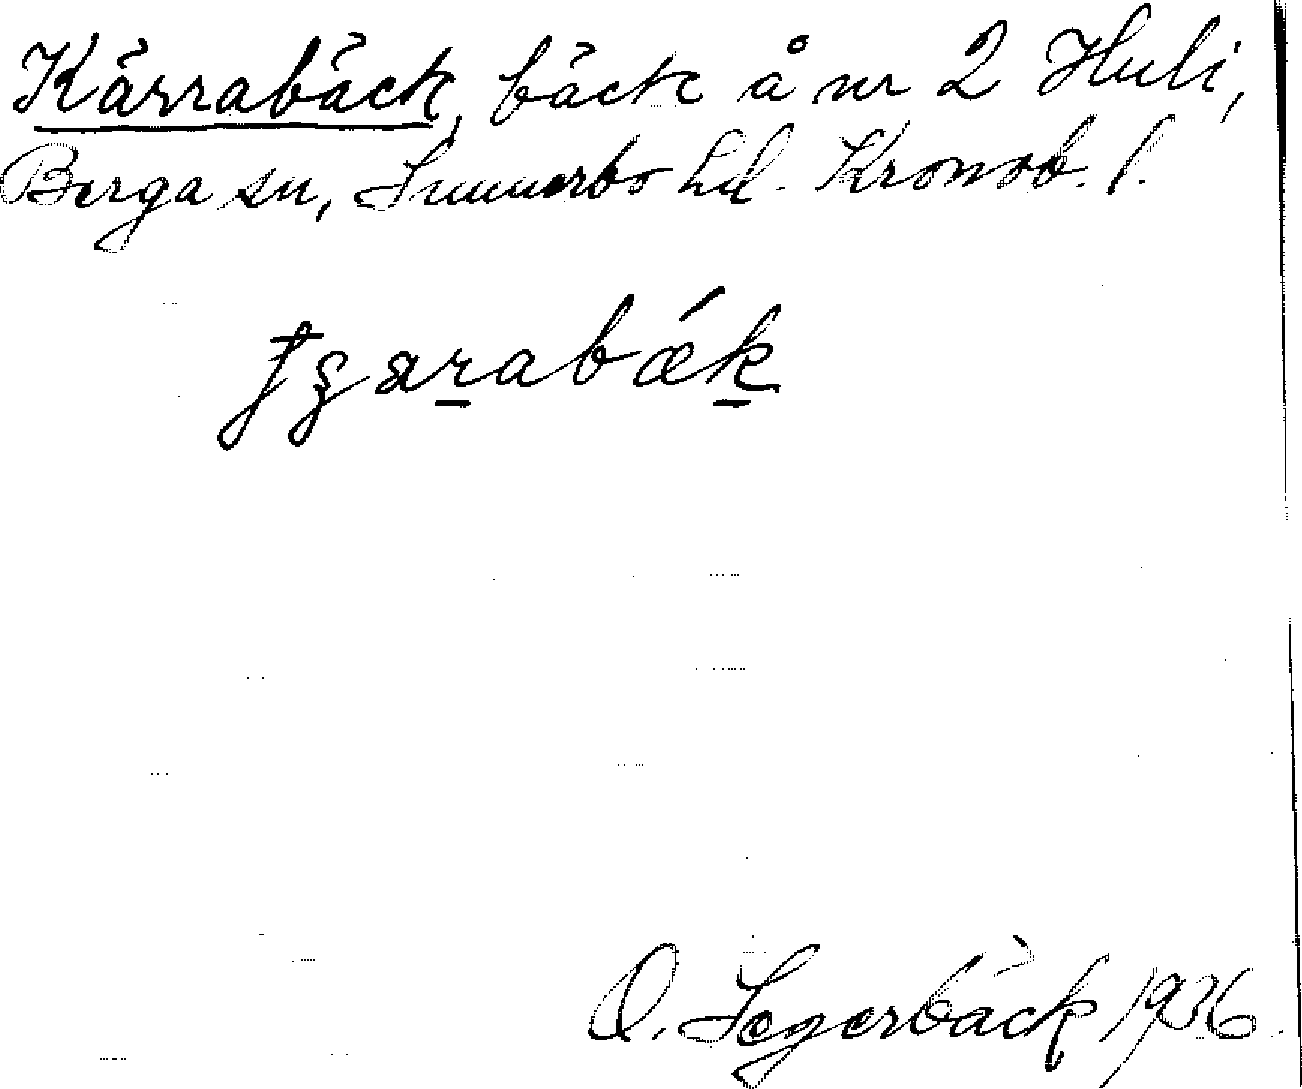 Kärrabäck, bäck å nr 2 Huli,
Berga sn, Sunnerbo hd. Kronob. l.
O. Segerbäck 1936